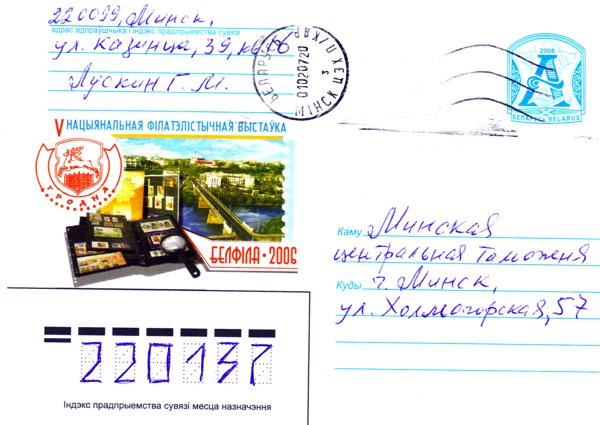 220099, Минск,
адрас адпраўшчыка і індэкс прадпрыемства сувязі
ул. Казинца, 39, кв. 16
Лускин Г. М.
БЕЛАРУСЬ
01020720
з
МІНСК
2006
А
БЕЛАРУСЬ BELARUS
V НАЦЫЯНАЛЬНАЯ ФІЛАТЭЛІСТЫЧНАЯ ВЫСТАЎКА
ГРОДНА
БЕЛФІЛА • 2006
Каму Минская
центральная таможня
Куды г. Минск,
ул. Холмогорская, 57
220137
Індэкс прадпрыемства сувязі месца назначэння